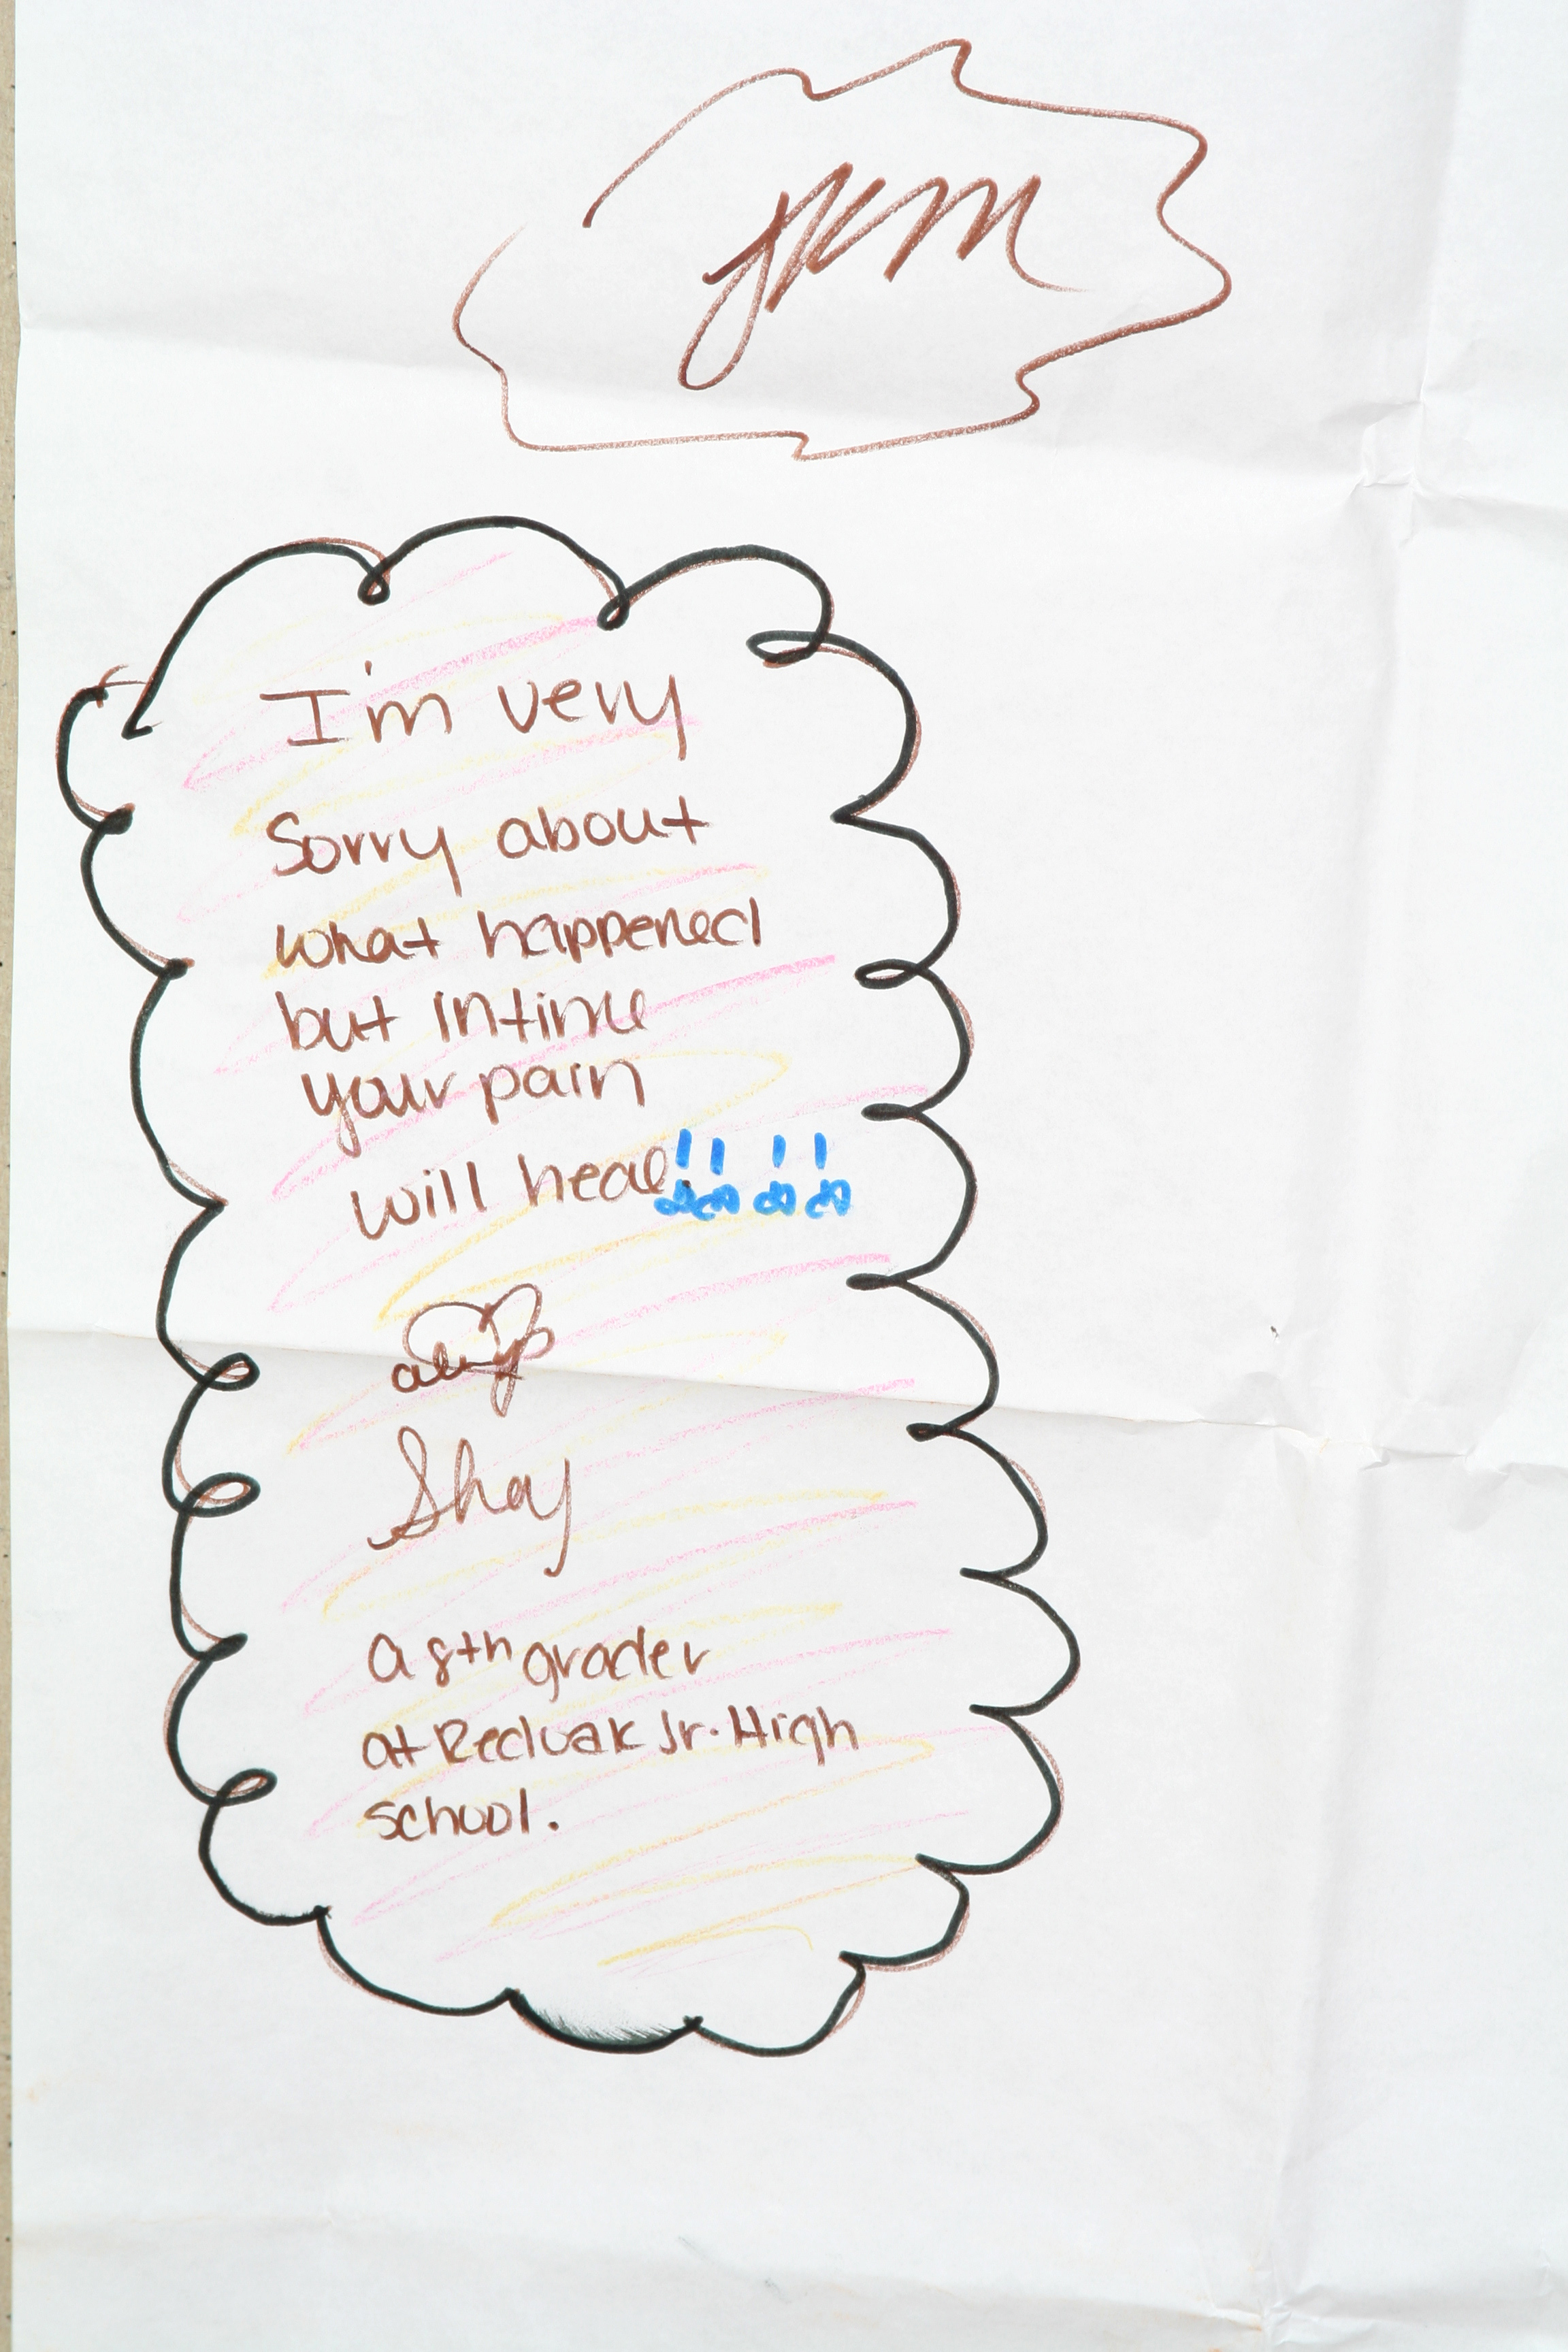 I'm very
Sorry about
what happened
but in time
your pain
will heal!!!!
Shay
a 8th grader
at Redoak Jr. High
school.